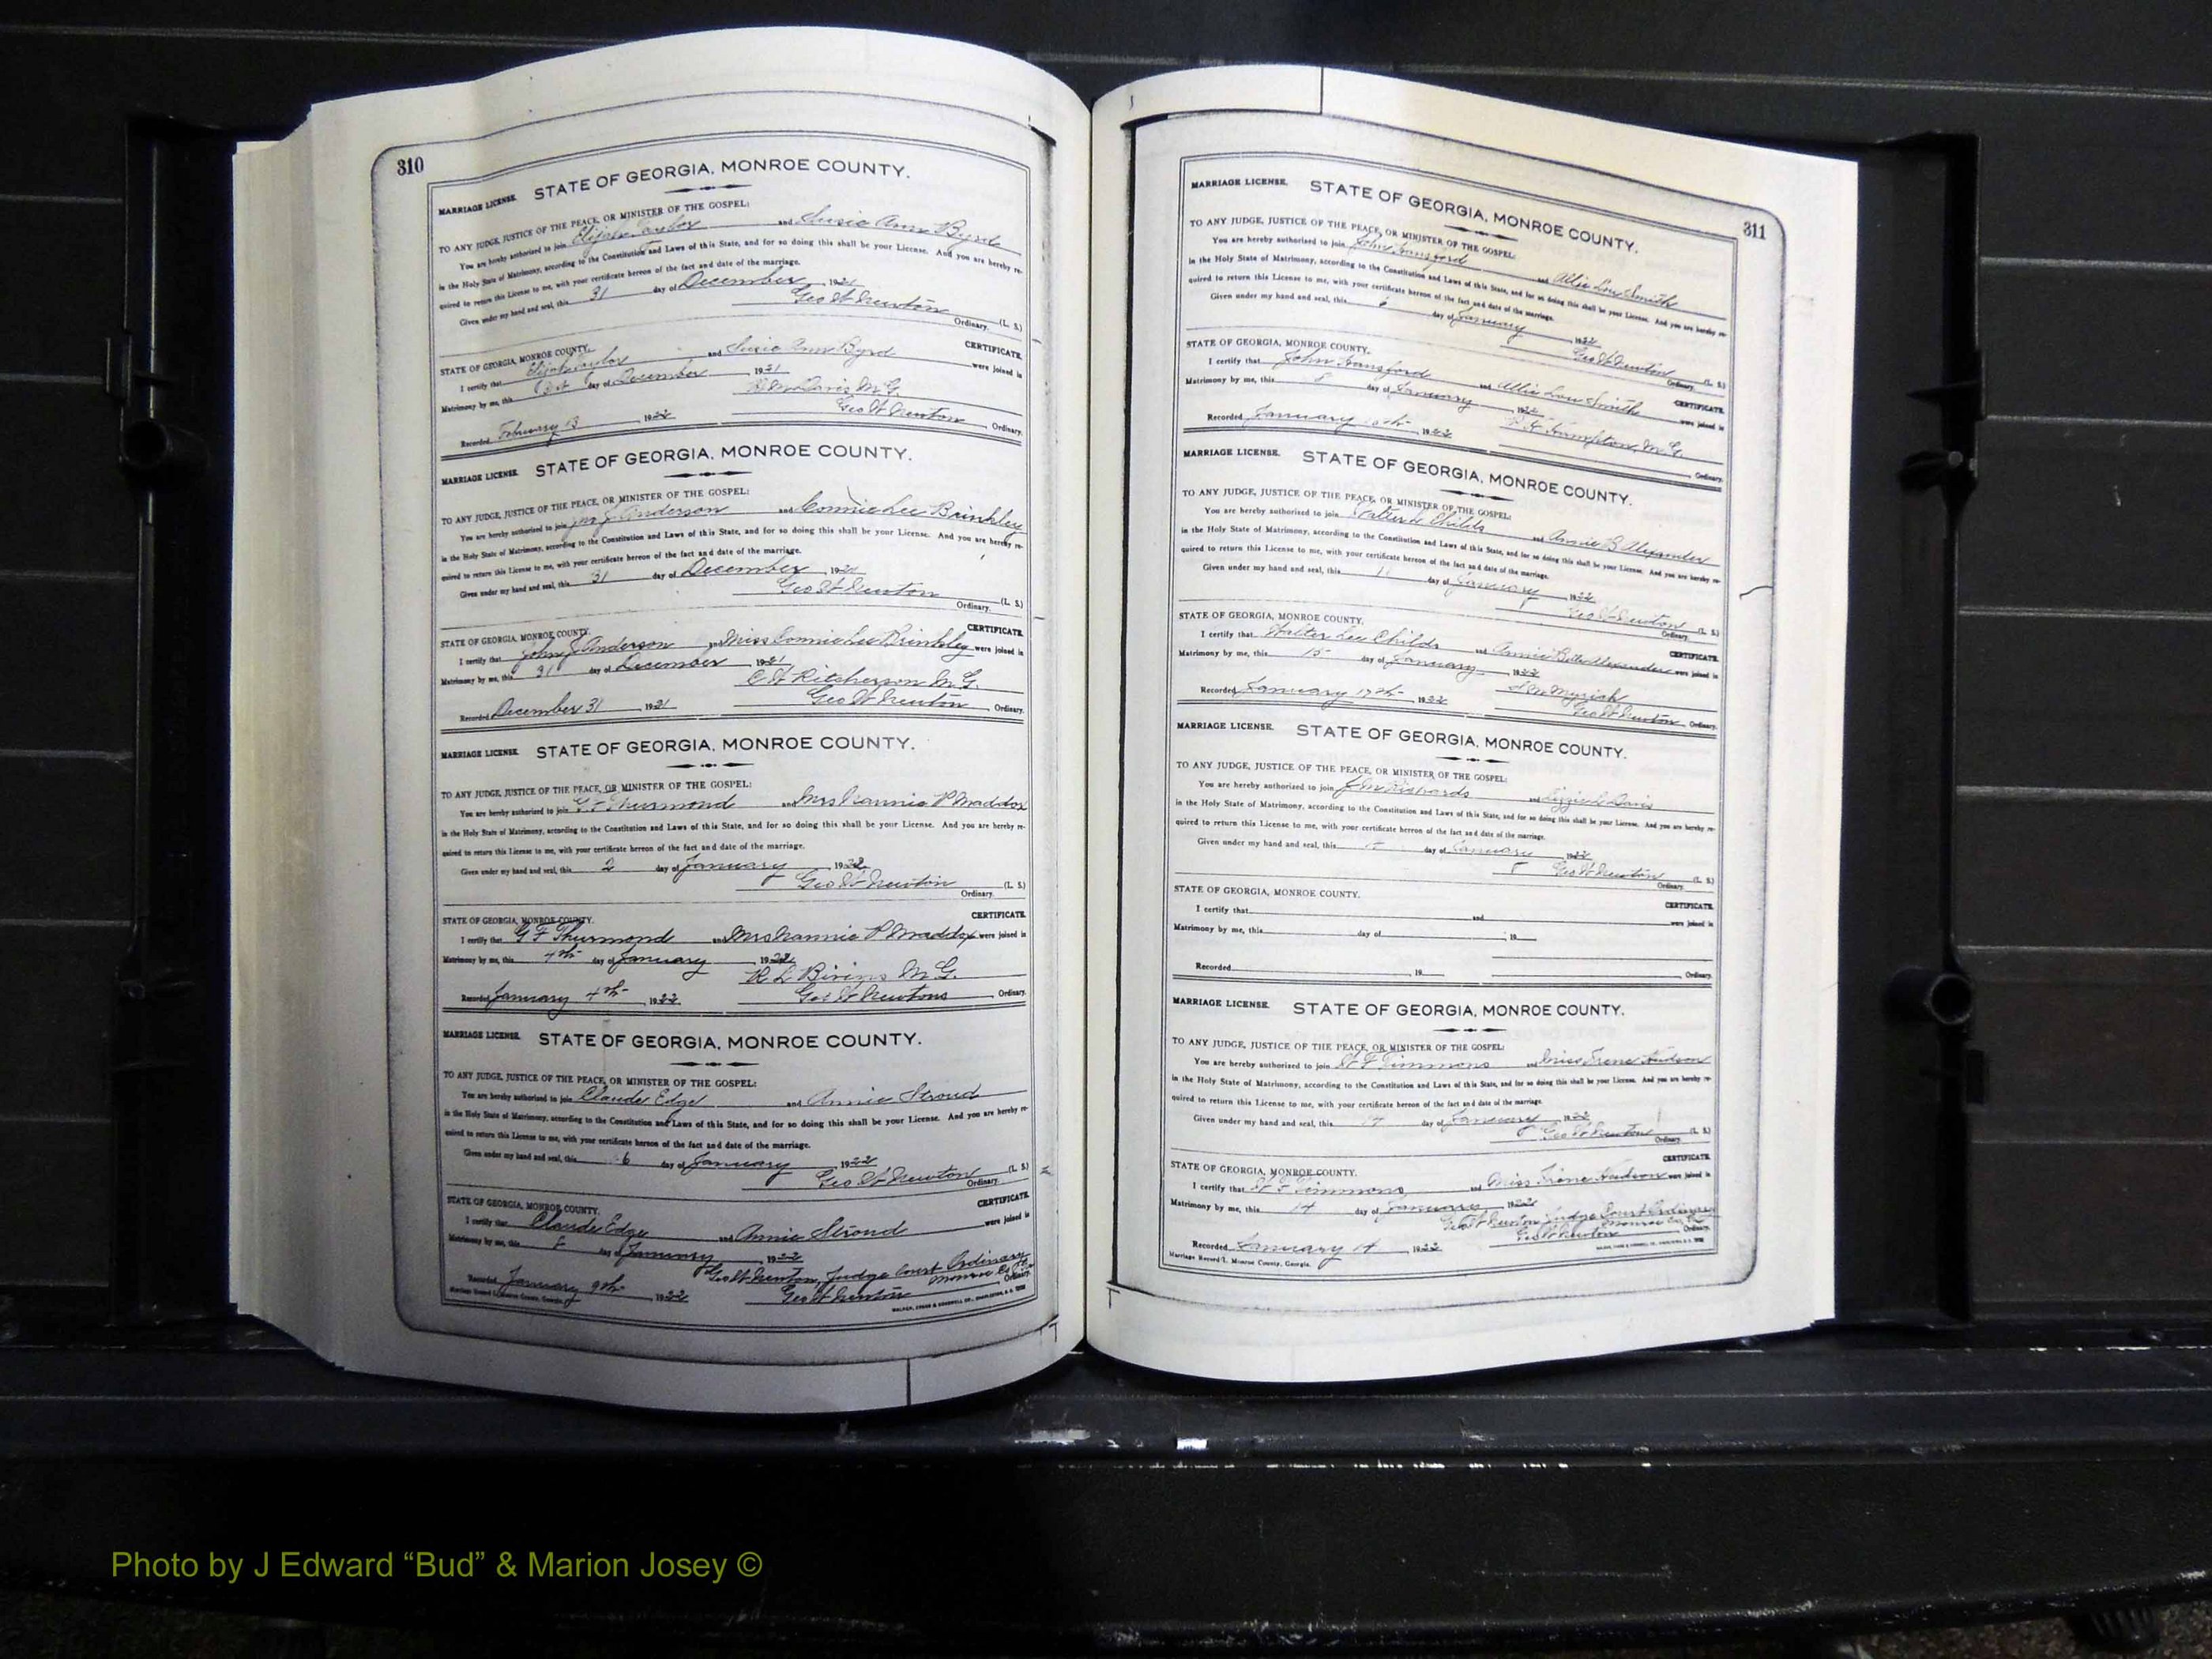 310
MARRIAGE LICENSE. STATE OF GEORGIA, MONROE COUNTY.
TO ANY JUDGE, JUSTICE OF THE PEACE, OR MINISTER OF THE GOSPEL:
You are hereby authorized to join Elijah Taylor and Susie Ann Byrd
in the Holy State of Matrimony, according to the Constitution and Laws of this State, and for so doing this shall be your License. And you are hereby re-
quired to return this License to me, with your certificate hereon of the fact and date of the marriage.
Given under my hand and seal, this 31 day of December, 1921
Geo W Newton (L. S.)
Ordinary.
STATE OF GEORGIA, MONROE COUNTY. CERTIFICATE.
I certify that Elijah Taylor and Susie Ann Byrd were joined in
Matrimony by me, this day of December, 1921
Davis M.G.
Recorded February 13 1922 Geo W Newton Ordinary.
MARRIAGE LICENSE. STATE OF GEORGIA, MONROE COUNTY.
TO ANY JUDGE, JUSTICE OF THE PEACE, OR MINISTER OF THE GOSPEL:
You are hereby authorized to join Jno J Anderson and Connie Lee Brinkley
in the Holy State of Matrimony, according to the Constitution and Laws of this State, and for so doing this shall be your License. And you are hereby re-
quired to return this License to me, with your certificate hereon of the fact and date of the marriage.
Given under my hand and seal, this 31 day of December, 1921
Geo W Newton (L. S.)
Ordinary.
STATE OF GEORGIA, MONROE COUNTY. CERTIFICATE.
I certify that John J Anderson and Miss Connie Lee Brinkley were joined in
Matrimony by me, this 31 day of December, 1921
C W Ritcherson M.G.
Recorded December 31, 1921 Geo W Newton, Ordinary.
MARRIAGE LICENSE. STATE OF GEORGIA, MONROE COUNTY.
TO ANY JUDGE, JUSTICE OF THE PEACE, OR MINISTER OF THE GOSPEL:
You are hereby authorized to join G F Thurmond and Mrs Nannie P Maddox
in the Holy State of Matrimony, according to the Constitution and Laws of this State, and for so doing this shall be your License. And you are hereby re-
quired to return this License to me, with your certificate hereon of the fact and date of the marriage.
Given under my hand and seal, this 2 day of January, 1922
Geo W Newton (L. S.)
Ordinary.
STATE OF GEORGIA, MONROE COUNTY. CERTIFICATE.
I certify that G F Thurmond and Mrs Nannie P Maddox were joined in
Matrimony by me, this 4th day of January, 1922
R L Bivins M.G.
Recorded January 4th, 1922 Geo W Newtons, Ordinary.
MARRIAGE LICENSE. STATE OF GEORGIA, MONROE COUNTY.
TO ANY JUDGE, JUSTICE OF THE PEACE, OR MINISTER OF THE GOSPEL:
You are hereby authorized to join Claude Edge and Annie Stroud
in the Holy State of Matrimony, according to the Constitution and Laws of this State, and for so doing this shall be your License. And you are hereby re-
quired to return this License to me, with your certificate hereon of the fact and date of the marriage.
Given under my hand and seal, this 6 day of January 1922
Geo W Newton (L. S.)
Ordinary.
STATE OF GEORGIA, MONROE COUNTY. CERTIFICATE.
I certify that Claude Edge and Annie Stroud were joined in
Matrimony by me, this 8 day of January, 1922
Geo W Newton, Judge Court Ordinary
Monroe Co Ga
Recorded January 9th 1922 Geo W Newton Ordinary.
311
MARRIAGE LICENSE. STATE OF GEORGIA, MONROE COUNTY.
TO ANY JUDGE, JUSTICE OF THE PEACE, OR MINISTER OF THE GOSPEL:
You are hereby authorized to join John and Allie Lou Smith
in the Holy State of Matrimony, according to the Constitution and Laws of this State, and for so doing this shall be your License. And you are hereby re-
quired to return this License to me, with your certificate hereon of the fact and date of the marriage.
Given under my hand and seal, this day of January, 1922
Geo W Newton (L. S.)
Ordinary.
STATE OF GEORGIA, MONROE COUNTY. CERTIFICATE.
I certify that John and Allie Lou Smith were joined in
Matrimony by me, this 8 day of January, 1922
M.G.
Recorded January 10th 1922 Ordinary.
MARRIAGE LICENSE. STATE OF GEORGIA, MONROE COUNTY.
TO ANY JUDGE, JUSTICE OF THE PEACE, OR MINISTER OF THE GOSPEL:
You are hereby authorized to join Walter L Childs and Annie B Alexander
in the Holy State of Matrimony, according to the Constitution and Laws of this State, and for so doing this shall be your License. And you are hereby re-
quired to return this License to me, with your certificate hereon of the fact and date of the marriage.
Given under my hand and seal, this day of January, 1922
Geo W Newton (L. S.)
Ordinary.
STATE OF GEORGIA, MONROE COUNTY. CERTIFICATE.
I certify that Walter Lee Childs and Annie Belle Alexander were joined in
Matrimony by me, this 15 day of January, 1922
Myrick
Recorded January 17th 1922 Geo W Newton Ordinary.
MARRIAGE LICENSE. STATE OF GEORGIA, MONROE COUNTY.
TO ANY JUDGE, JUSTICE OF THE PEACE, OR MINISTER OF THE GOSPEL:
You are hereby authorized to join J M Richards and Lizzie L Davis
in the Holy State of Matrimony, according to the Constitution and Laws of this State, and for so doing this shall be your License. And you are hereby re-
quired to return this License to me, with your certificate hereon of the fact and date of the marriage.
Given under my hand and seal, this day of January 1922
Geo W Newton (L. S.)
Ordinary.
STATE OF GEORGIA, MONROE COUNTY. CERTIFICATE.
I certify that and were joined in
Matrimony by me, this day of, 19
Recorded 19 Ordinary.
MARRIAGE LICENSE. STATE OF GEORGIA, MONROE COUNTY.
TO ANY JUDGE, JUSTICE OF THE PEACE, OR MINISTER OF THE GOSPEL:
You are hereby authorized to join W F Timmons and Miss Irene Hudson
in the Holy State of Matrimony, according to the Constitution and Laws of this State, and for so doing this shall be your License. And you are hereby re-
quired to return this License to me, with your certificate hereon of the fact and date of the marriage.
Given under my hand and seal, this 14 day of January, 1922
Geo W Newton (L. S.)
Ordinary.
STATE OF GEORGIA, MONROE COUNTY. CERTIFICATE.
I certify that W F Timmons and Miss Irene Hudson were joined in
Matrimony by me, this 14 day of January 1922
Geo W Newton Judge Court Ordinary
Monroe Co, Ga
Recorded January 14, 1922 Geo W Newton Ordinary.
Marriage Record L Monroe County, Georgia.
Photo by J Edward “Bud” & Marion Josey ©